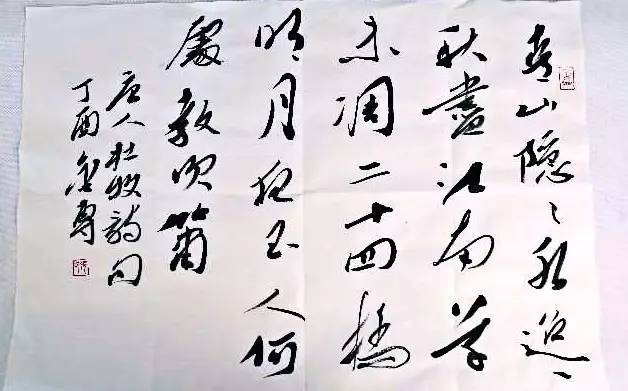 青山隐〻水迢〻
秋盡江南草
未凋二十四橋
明月夜玉人何
處教吹箫
唐人杜牧詩句
丁酉